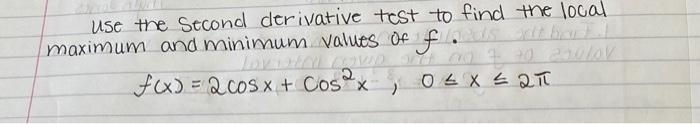 use the second derivative test to find the local
maximum and minimum values of f.
f(x) = 2 cos x + Cos²x , 0 ≤ x ≤ 2π